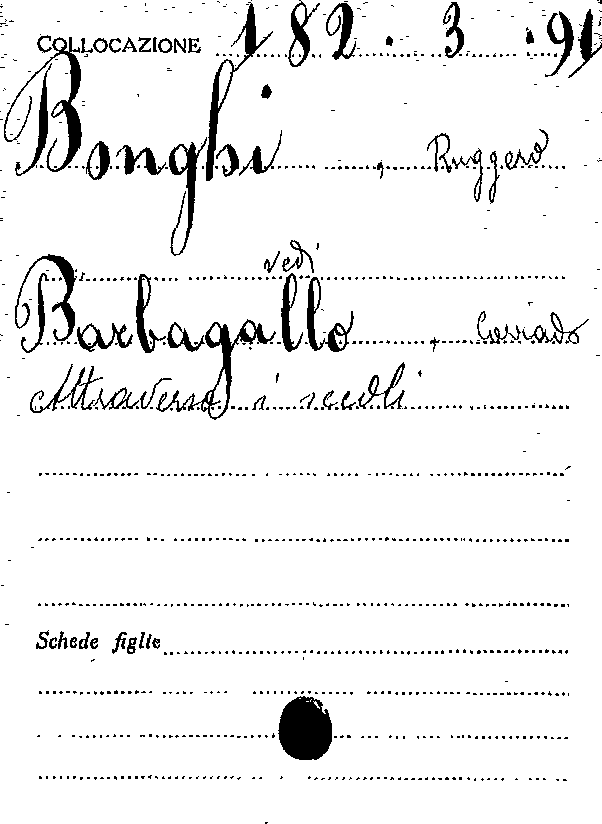 COLLOCAZIONE 182.3.91
Bonghi, Ruggero
vedi
Barbagallo, Corrado
Attraverso i secoli
Schede figlie